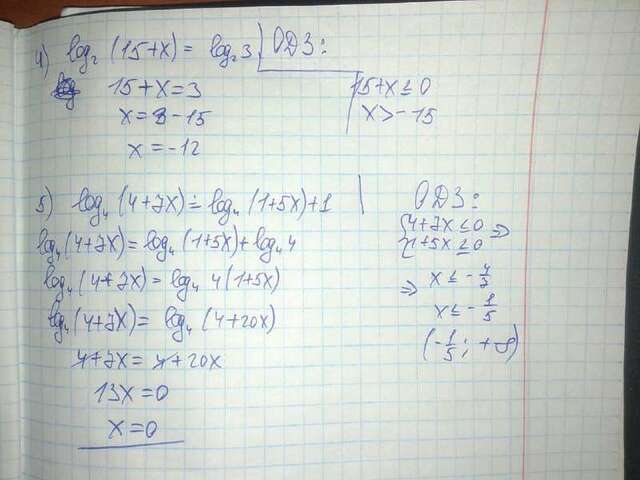 4) log₂ (15+x) = log₂ 3 ОДЗ:
15+x=3
15+x≤0
x=3-15
x>-15
x=-12
5) log₄ (4+7x) = log₄ (1+5x)+1
ОДЗ:
log₄ (4+7x) = log₄ (1+5x)+log₄ 4
{4+7x≤0
1+5x≤0 ⇒
log₄ (4+7x) = log₄ 4(1+5x)
⇒ x≤-4/7
x≤-1/5
log₄ (4+7x) = log₄ (4+20x)
(-1/5; +∞)
4+7x=4+20x
13x=0
x=0